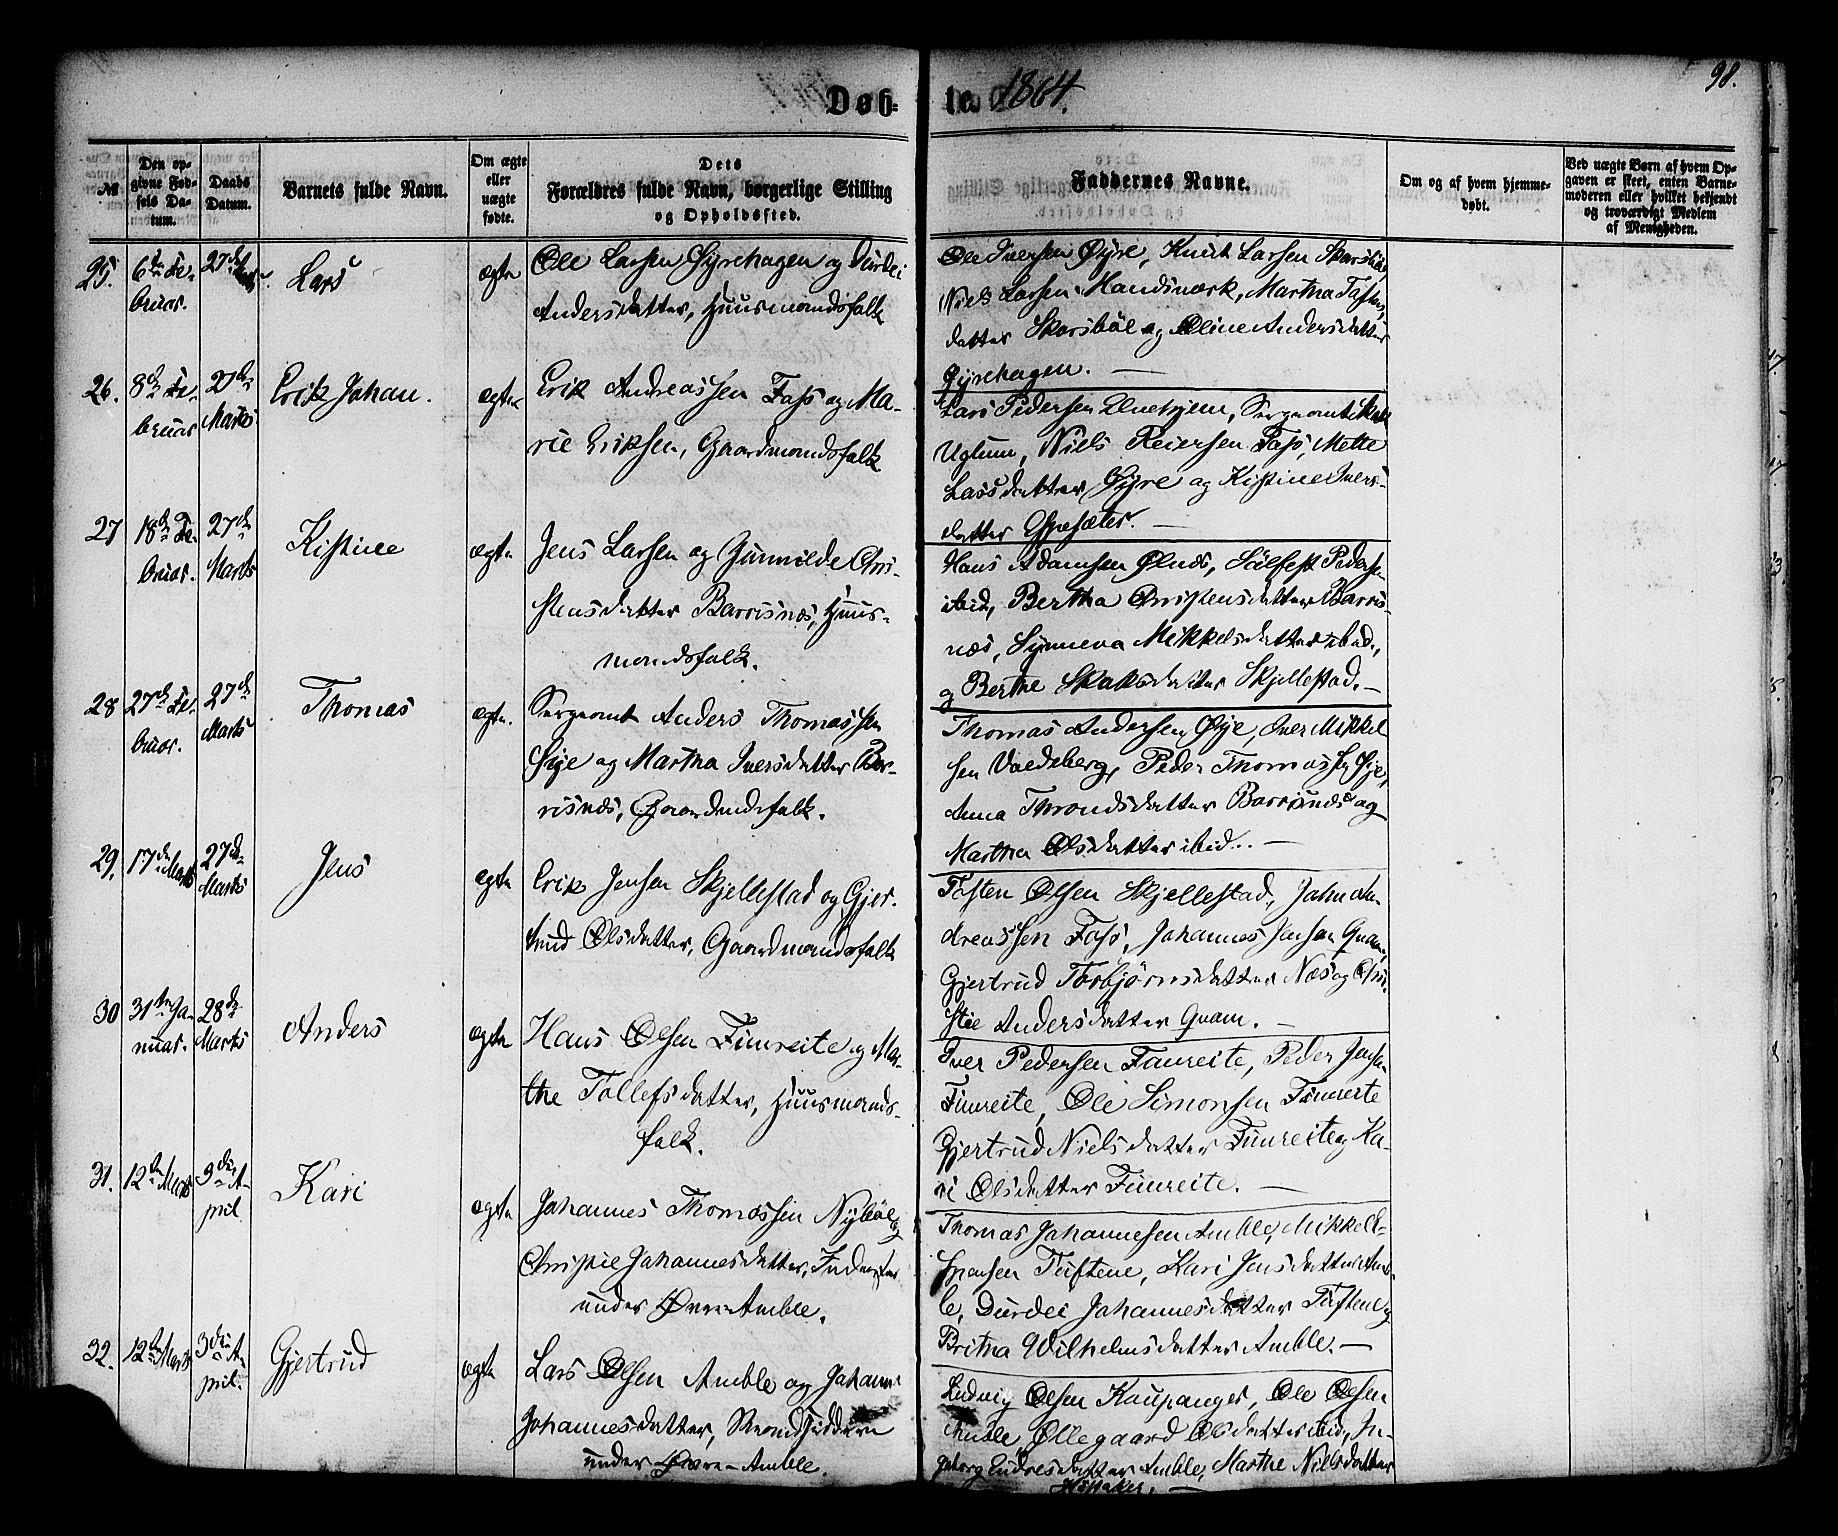 98.
Døbte. 1864.
№
Den opgivne Fødsels Datum.
Daabs Datum.
Barnets fulde Navn.
Om ægte eller uægte fødte.
Dets Forældres fulde Navn, borgerlige Stilling og Opholdssted.
Faddernes Navne.
Om og af hvem hjemmedøbt.
Ved uægte Børn af hvem Opgaven er skeet, enten Barnemoderen eller hvilket bekjendt og troværdigt Medlem af Menigheden.
25. 6te Februar. 27de Marts Lars ægte
Ole Larsen Gyrehagen og Durdei
Andersdatter, Huusmandsfolk
Ole Iversen Øyre, Knut Larsen Skarsböl
Niels Larsen Handsværk, Martha
datter Skarsböl og Oline Andersdatter
Gyrehagen. —
26. 8de Februar 27de Marts Erik Johan. ægte
Erik Andreassen Foss og Ma-
rie Eriksen, Gaardmandsfolk
Lars Pedersen Sergeant
Uglum, Niels Reiersen Foss, Mette
Larsdatter Øyre og Kistine Ivers-
datter —
27 18de Februar. 27de Marts Kistine ægte
Jens Larsen og Gunnilde Chri-
stensdatter Barsnæs, Huus-
mandsfolk.
Hans Adamsen Ølnæs, Sölfest Peders
ibid, Bertha Christensdatter Bars-
næs, Synneva Mikkelsdatter ibid.,
og Berthe Skaksdatter Skjellestad. —
28 27de Februar. 27de Marts Thomas ægte.
Sergeant Anders Thomassen
Øye og Martha Iversdatter Bar-
isnæs, Gaardmandsfolk.
Thomas Andersen Øye, Iver Mikkel
sen Peder Thomassen Øye,
Anna Throndsdatter Barsnæs og
Martha Olsdatter ibid. —
29. 17de Marts 27de Marts Jens ægte
Erik Jensen Skjellestad og Gjer-
trud Olsdatter, Gaardmandsfolk
Tosten Olsen Skjellestad, John An-
dreassen Foss, Johannes Jensen Quam,
Gjertrud Torbjørnsdatter Næs og Chri-
stie Andersdatter Quam. —
30 31te Januar. 28de Marts Anders ægte
Hans Olsen Fimreite og Mar-
the Tollefsdatter, Huusmands-
folk.
Iver Pedersen Fimreite, Peder Jensen
Fimreite, Ole Simonsen Fimreite
Gjertrud Nielsdatter Fimreite og Ka-
ri Olsdatter Fimreite. —
31. 12te Marts 3die April Kari ægte
Johannes Thomassen Nyböl og
Christie Johannesdatter, Inderster
under Øvre Amble.
Thomas Johannesen Amble, Mikkel
Tuftene, Kari Jensdatter Amb-
le, Durdei Johannesdatter Tuftene og
Britha Wilhelmsdatter Amble. —
32. 12te Marts 3die April. Gjertrud ægte
Lars Olsen Amble og Johanne
Johannesdatter, Strandsiddere
under Øvre-Amble.
Ludvig Olsen Kaupanger, Ole Olsen
Amble, Øllegaard Olsdatter ibid, In-
geborg Endresdatter Amble, Marthe Nielsdatter